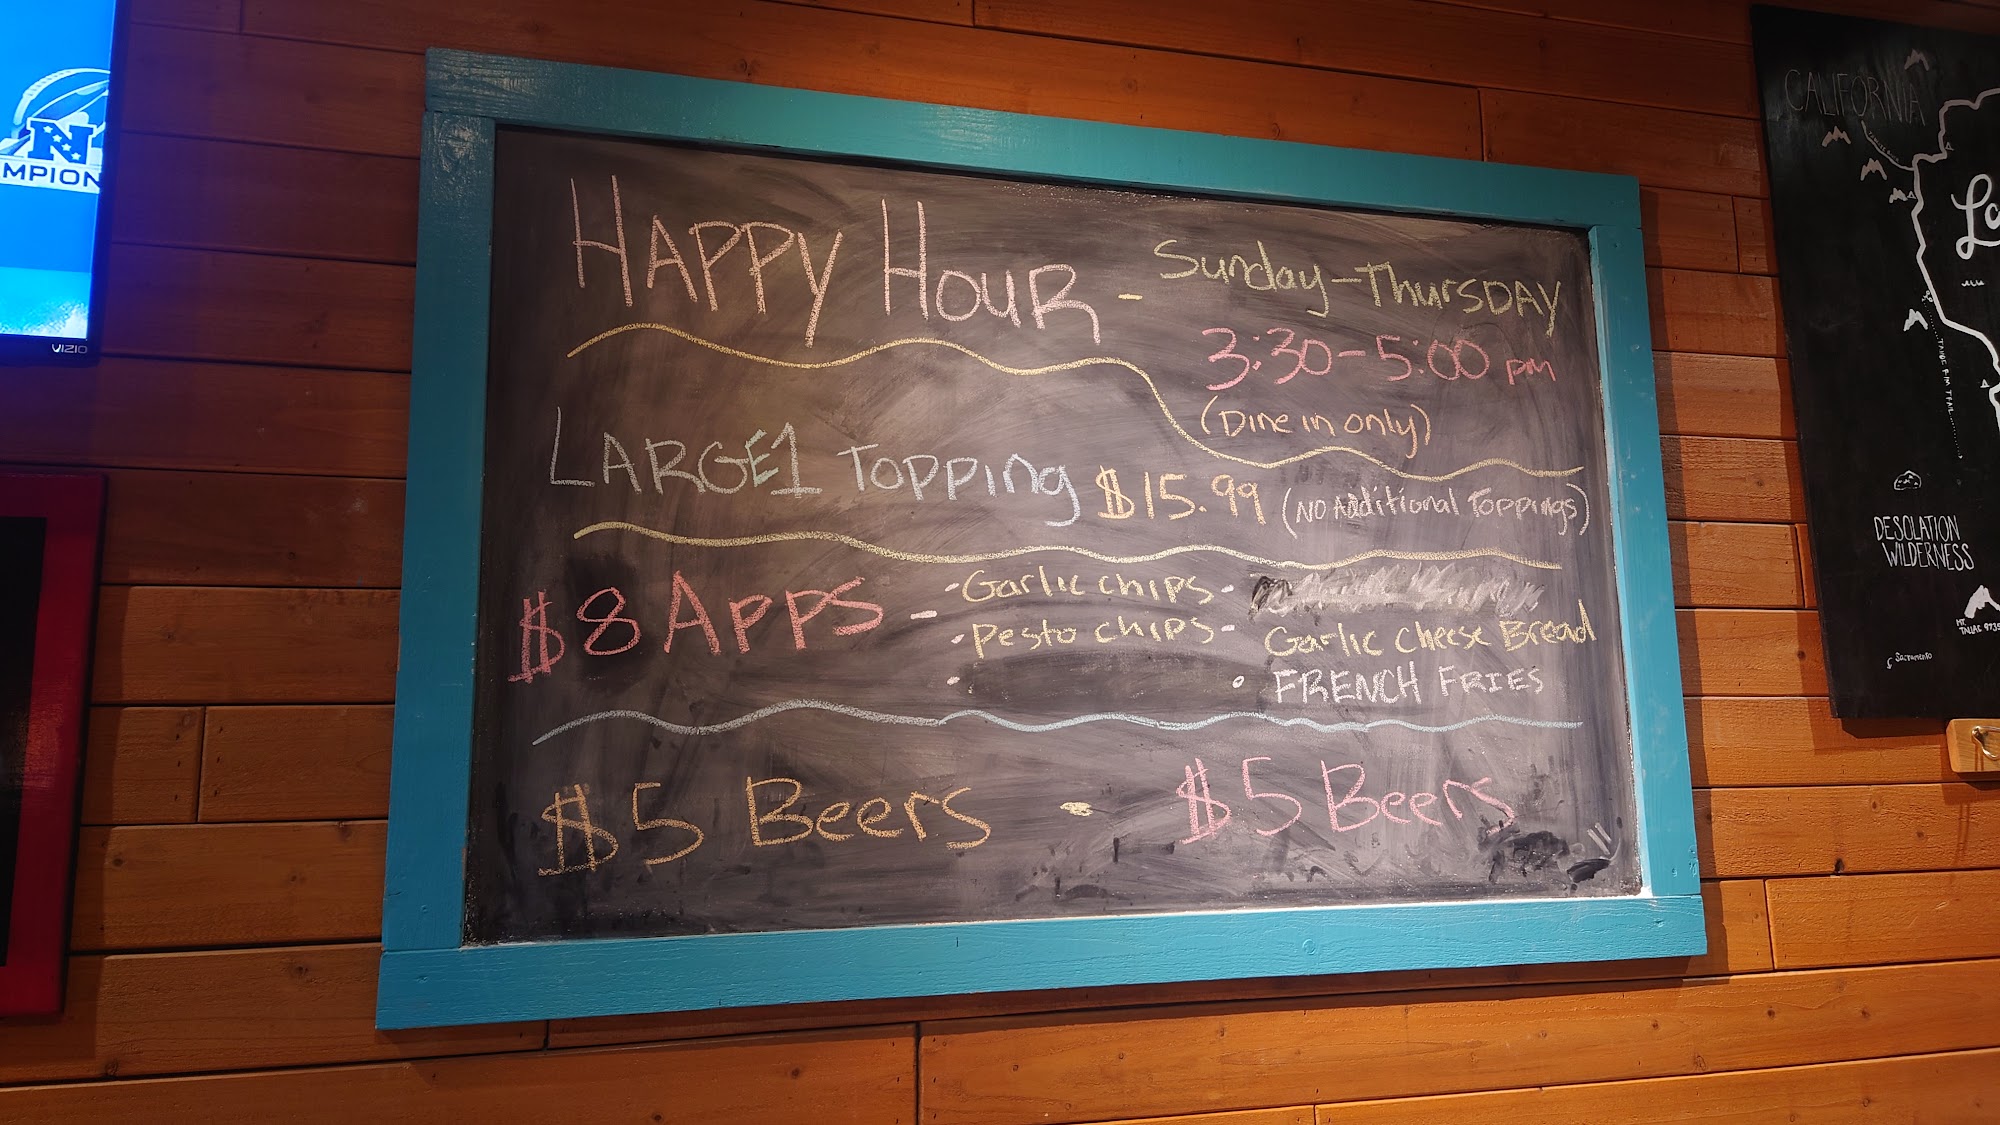 HAPPY HOUR - Sunday-Thursday
3:30-5:00 pm
(Dine in only)
LARGE 1 Topping $15.99 (No Additional Toppings)
$8 Apps - • Garlic chips -
• Pesto chips - Garlic cheese Bread
• • FRENCH FRIES
$5 Beers - $5 Beers
N
MPION
VIZIO
CALIFORNIA
TAHOE RIM TRAIL
DESOLATION
WILDERNESS
MT.
Sacramento